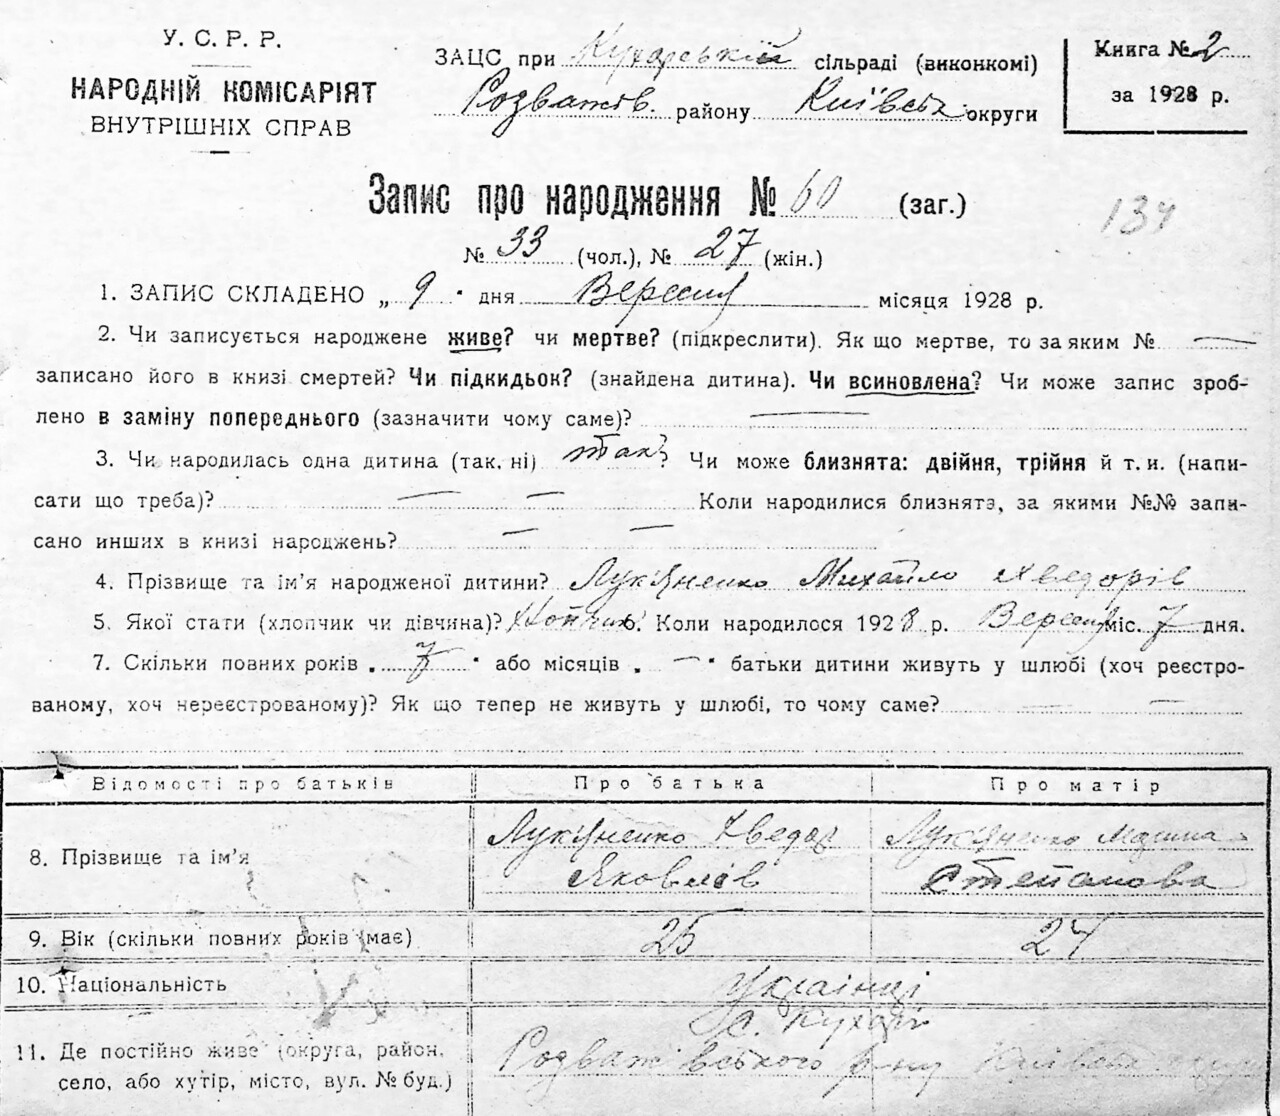 У. С. Р. Р.
НАРОДНІЙ КОМІСАРІЯТ
ВНУТРІШНІХ СПРАВ
ЗАЦС при Кухарській сільраді (виконкомі)
Розважів. району Київськ. округи
Книга № 2
за 1928 р.
Запис про народження № 60 (заг.)
134
№ 33 (чол.), № 27 (жін.)
1. ЗАПИС СКЛАДЕНО „ 9 " дня Вересня місяця 1928 р.
2. Чи записується народжене живе? чи мертве? (підкреслити). Як що мертве, то за яким № —
записано його в книзі смертей? Чи підкидьок? (знайдена дитина). Чи всиновлена? Чи може запис зроб-
лено в заміну попереднього (зазначити чому саме)? —
3. Чи народилась одна дитина (так, ні) так? Чи може близнята: двійня, трійня й т. и. (напи-
сати що треба)? — — Коли народилися близнята, за якими №№ запи-
сано инших в книзі народжень? — —
4. Прізвище та ім'я народженої дитини? Лук'яненко Михайло Хведорів
5. Якої стати (хлопчик чи дівчина)? 6. Коли народилося 1928 р. Вересня міс. 7 дня.
7. Скільки повних років „ 7 " або місяців „ — " батьки дитини живуть у шлюбі (хоч реєстро-
ваному, хоч нереєстрованому)? Як що тепер не живуть у шлюбі, то чому саме? — —
Відомості про батьків Про батька Про матір
8. Прізвище та ім'я
Лук'яненко Хведор
Яковлів
Лук'яненко
Степанова
9. Вік (скільки повних років має) 25 24
10. Національність Українці
11. Де постійно живе (округа, район,
село, або хутір, місто, вул. № буд.)
с. Кухарі
Розважівського р-ну Київськ.